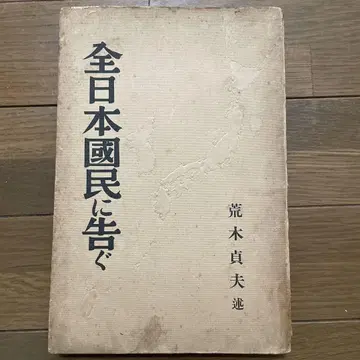 全日本國民に告ぐ
荒木貞夫述